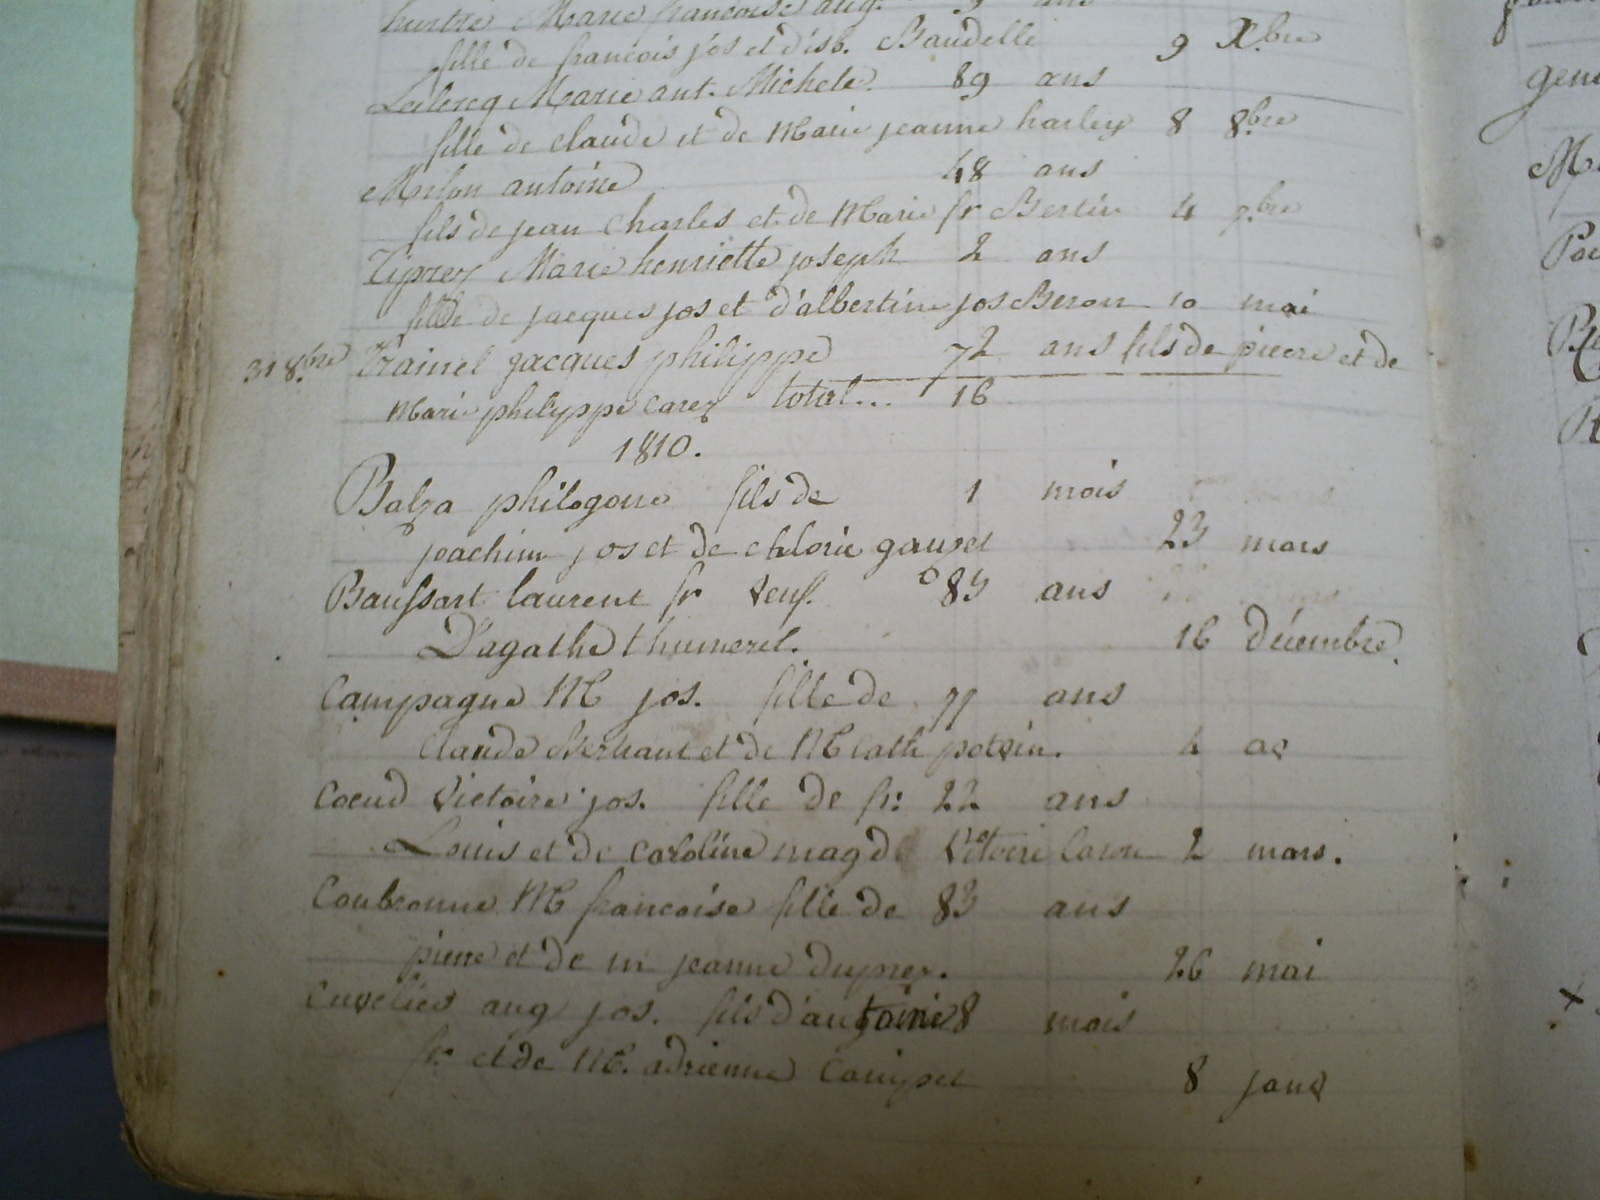 Marie francoise aug. 9 ans
fille de francois jos et d'isb. Baudelle 9 Xbre
Leclercq Marie ant. Michele 89 ans
fille de claude et de Marie jeanne harley 8 8bre
antoine 48 ans
fils de jean Charles et de Marie fr Bertin 4 7bre
Tiprez Marie henriette joseph 2 ans
fille de jacques jos et d'albertine jos Beron 10 mai
31 8bre Trainel jacques philippe 72 ans fils de pierre et de
Marie philippe carez total... 16
1810.
Balza philogone fils de 1 mois
joachim jos et de chlorie gaupet 23 mars
Baussart laurent fr veuf. 83 ans
D'agathe thumerel. 16 décembre.
Campagne M jos. fille de 77 ans
Claude et de M cath potvin. 4
Coeud Victoire jos. fille de fr: 22 ans
Louis et de caroline magd Victoire Caron 2 mars.
Coubronne M francoise fille de 83 ans
pierre et de m jeanne duprez. 26 mai
Cuvelier aug jos. fils d'antoine 8 mois
fr et de M. adrienne Caupet 8 janv